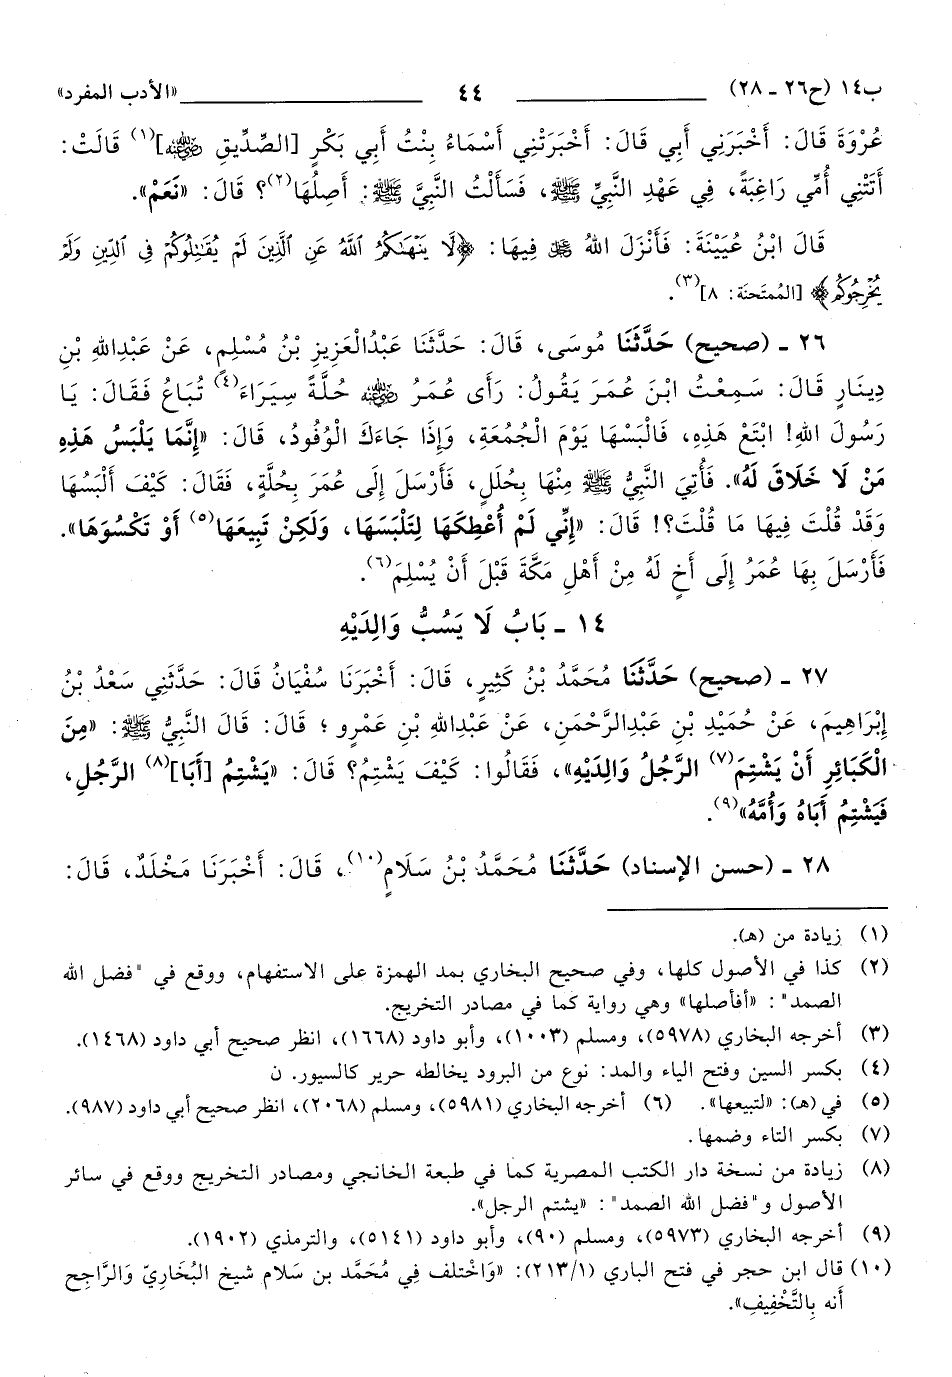 ب١٤ (ح٢٦ - ٢٨) ٤٤ «الأدب المفرد»
عُرْوَةَ قَالَ: أَخْبَرَنِي أَبِي قَالَ: أَخْبَرَتْنِي أَسْمَاءُ بِنْتُ أَبِي بَكْرٍ [الصِّدِّيقِ ﵁](١) قَالَتْ:
أَتَتْنِي أُمِّي رَاغِبَةً، فِي عَهْدِ النَّبِيِّ ﷺ، فَسَأَلْتُ النَّبِيَّ ﷺ: أَصِلُهَا(٢)؟ قَالَ: «نَعَمْ».
قَالَ ابْنُ عُيَيْنَةَ: فَأَنْزَلَ اللهُ ﷿ فِيهَا: ﴿لَا يَنْهَىٰكُمُ ٱللَّهُ عَنِ ٱلَّذِينَ لَمْ يُقَٰتِلُوكُمْ فِى ٱلدِّينِ وَلَمْ
يُخْرِجُوكُم﴾ [الممتحنة: ٨](٣).
٢٦ - (صحيح) حَدَّثَنَا مُوسَى، قَالَ: حَدَّثَنَا عَبْدُالْعَزِيزِ بْنُ مُسْلِمٍ، عَنْ عَبْدِاللهِ بْنِ
دِينَارٍ قَالَ: سَمِعْتُ ابْنَ عُمَرَ يَقُولُ: رَأَى عُمَرُ ﵁ حُلَّةً سِيَرَاءَ(٤) تُبَاعُ فَقَالَ: يَا
رَسُولَ اللهِ! ابْتَعْ هَذِهِ، فَالْبَسْهَا يَوْمَ الْجُمُعَةِ، وَإِذَا جَاءَكَ الْوُفُودُ، قَالَ: «إِنَّمَا يَلْبَسُ هَذِهِ
مَنْ لَا خَلَاقَ لَهُ». فَأُتِيَ النَّبِيُّ ﷺ مِنْهَا بِحُلَلٍ، فَأَرْسَلَ إِلَى عُمَرَ بِحُلَّةٍ، فَقَالَ: كَيْفَ أَلْبَسُهَا
وَقَدْ قُلْتَ فِيهَا مَا قُلْتَ؟! قَالَ: «إِنِّي لَمْ أُعْطِكَهَا لِتَلْبَسَهَا، وَلَكِنْ تَبِيعَهَا(٥) أَوْ تَكْسُوَهَا».
فَأَرْسَلَ بِهَا عُمَرُ إِلَى أَخٍ لَهُ مِنْ أَهْلِ مَكَّةَ قَبْلَ أَنْ يُسْلِمَ(٦).
١٤ - بَابُ لَا يَسُبُّ وَالِدَيْهِ
٢٧ - (صحيح) حَدَّثَنَا مُحَمَّدُ بْنُ كَثِيرٍ، قَالَ: أَخْبَرَنَا سُفْيَانُ قَالَ: حَدَّثَنِي سَعْدُ بْنُ
إِبْرَاهِيمَ، عَنْ حُمَيْدِ بْنِ عَبْدِالرَّحْمَنِ، عَنْ عَبْدِاللهِ بْنِ عَمْرٍو ؛ قَالَ: قَالَ النَّبِيُّ ﷺ: «مِنَ
الْكَبَائِرِ أَنْ يَشْتِمَ(٧) الرَّجُلُ وَالِدَيْهِ»، فَقَالُوا: كَيْفَ يَشْتِمُ؟ قَالَ: «يَشْتِمُ [أَبَا](٨) الرَّجُلِ،
فَيَشْتِمُ أَبَاهُ وَأُمَّهُ»(٩).
٢٨ - (حسن الإسناد) حَدَّثَنَا مُحَمَّدُ بْنُ سَلَامٍ(١٠)، قَالَ: أَخْبَرَنَا مَخْلَدٌ، قَالَ:
(١) زيادة من (هـ).
(٢) كذا في الأصول كلها، وفي صحيح البخاري بمد الهمزة على الاستفهام، ووقع في "فضل الله
الصمد": «أفأصلها» وهي رواية كما في مصادر التخريج.
(٣) أخرجه البخاري (٥٩٧٨)، ومسلم (١٠٠٣)، وأبو داود (١٦٦٨)، انظر صحيح أبي داود (١٤٦٨).
(٤) بكسر السين وفتح الياء والمد: نوع من البرود يخالطه حرير كالسيور. ن
(٥) في (هـ): «لتبيعها». (٦) أخرجه البخاري (٥٩٨١)، ومسلم (٢٠٦٨)، انظر صحيح أبي داود (٩٨٧).
(٧) بكسر التاء وضمها.
(٨) زيادة من نسخة دار الكتب المصرية كما في طبعة الخانجي ومصادر التخريج ووقع في سائر
الأصول و"فضل الله الصمد": «يشتم الرجل».
(٩) أخرجه البخاري (٥٩٧٣)، ومسلم (٩٠)، وأبو داود (٥١٤١)، والترمذي (١٩٠٢).
(١٠) قال ابن حجر في فتح الباري (٢١٣/١): «وَاخْتلف فِي مُحَمَّد بن سَلام شيخ البُخَارِيّ وَالرَّاجِح
أنه بِالتَّخْفِيفِ».